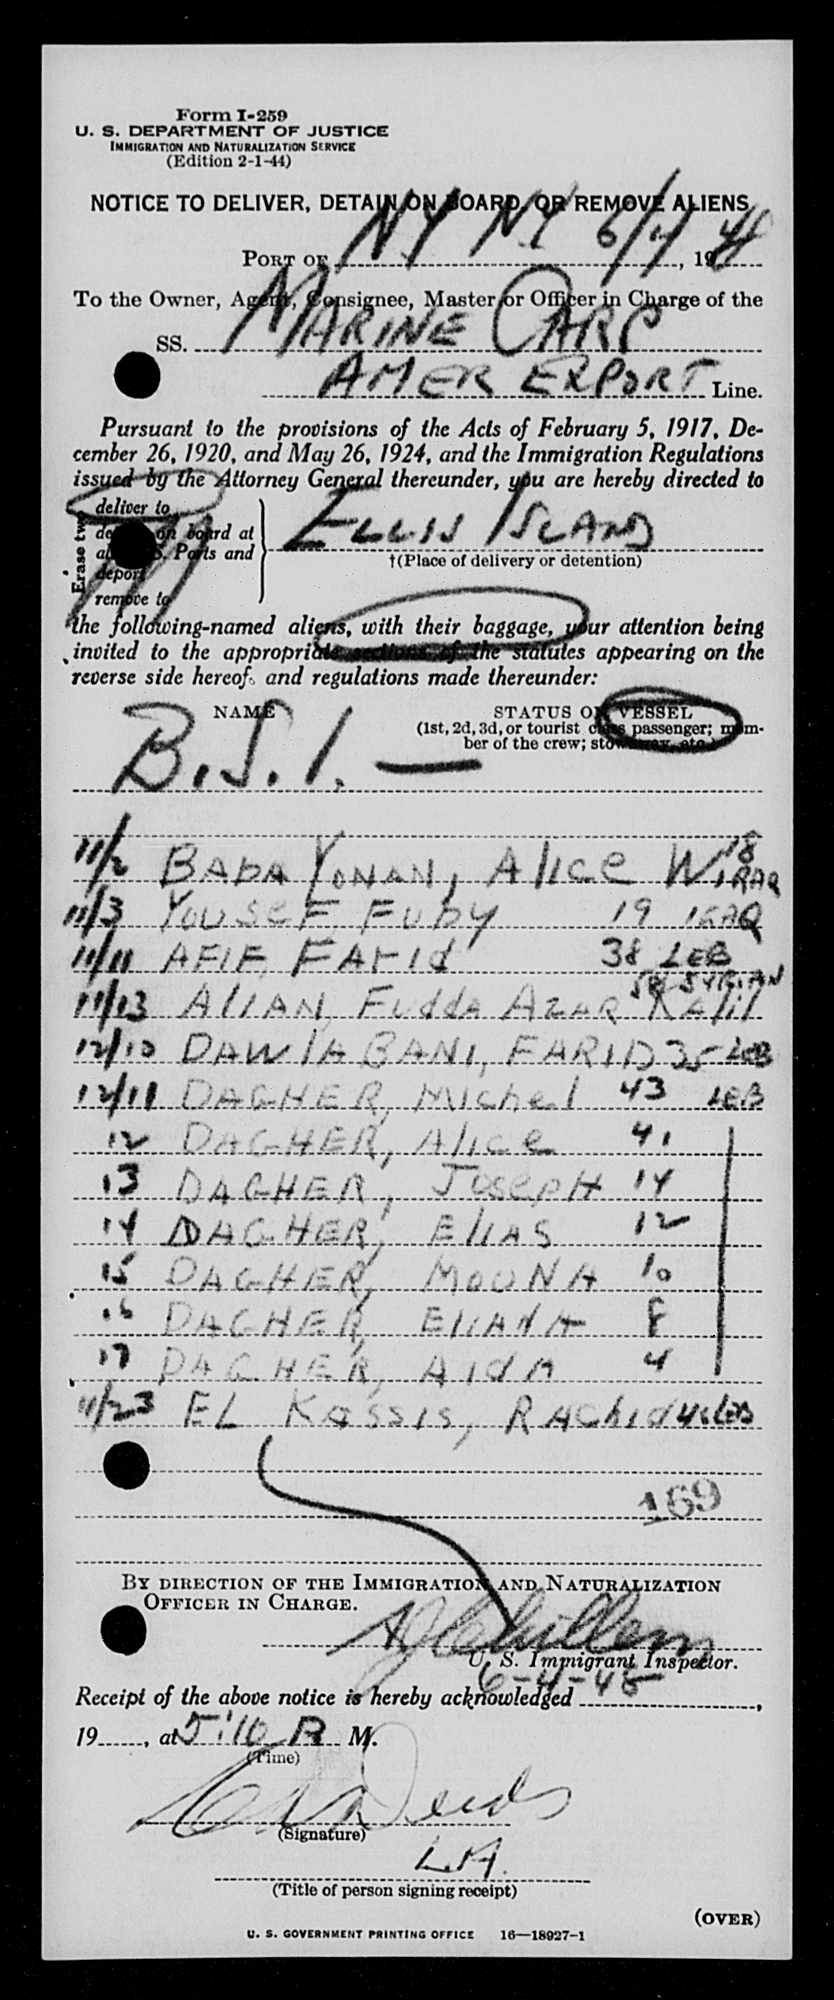 Form I-259
U. S. DEPARTMENT OF JUSTICE
IMMIGRATION AND NATURALIZATION SERVICE
(Edition 2-1-44)
NOTICE TO DELIVER, DETAIN ON BOARD, OR REMOVE ALIENS
PORT OF NY NY 6/4, 1948
To the Owner, Agent, Consignee, Master or Officer in Charge of the
SS. MARINE CARP
AMER EXPORT Line.
Pursuant to the provisions of the Acts of February 5, 1917, De-
cember 26, 1920, and May 26, 1924, and the Immigration Regulations
issued by the Attorney General thereunder, you are hereby directed to
Erase two
deliver to
on board at
Ports and
deport
remove to
ELLIS ISLAND
†(Place of delivery or detention)
the following-named aliens, with their baggage, your attention being
invited to the appropriate sections of the statutes appearing on the
reverse side hereof, and regulations made thereunder:
NAME
STATUS ON VESSEL
(1st, 2d, 3d, or tourist class passenger; mem-
ber of the crew; stowaway, etc.)
B.S.I. —
11/2 BABA YONAN, Alice W 18 IRAQ
11/3 YOUSEF, FUBY 19 IRAQ
11/11 AFIF, FARId 38 LEB
11/13 AlIAN, FUddA AZAR KAlil 58 SYRIAN
12/10 DAWlA BANI, FARID 35 LEB
12/11 DAGHER, Michel 43 LEB
12 DAGHER, Alice 41
13 DAGHER, JosePH 14
14 DAGHER, ElIAS 12
15 DAGHER, MOUNA 10
16 DAGHER, ElIANA 8
17 DAGHER, AIdA 4
11/23 EL KASSIS, RAChid 46 LEB
169
BY DIRECTION OF THE IMMIGRATION AND NATURALIZATION
OFFICER IN CHARGE.
U. S. Immigrant Inspector.
6-4-48
Receipt of the above notice is hereby acknowledged,
19, at 5:10 P. M.
(Time)
(Signature)
L.A.
(Title of person signing receipt)
(OVER)
U. S. GOVERNMENT PRINTING OFFICE 16—18927-1